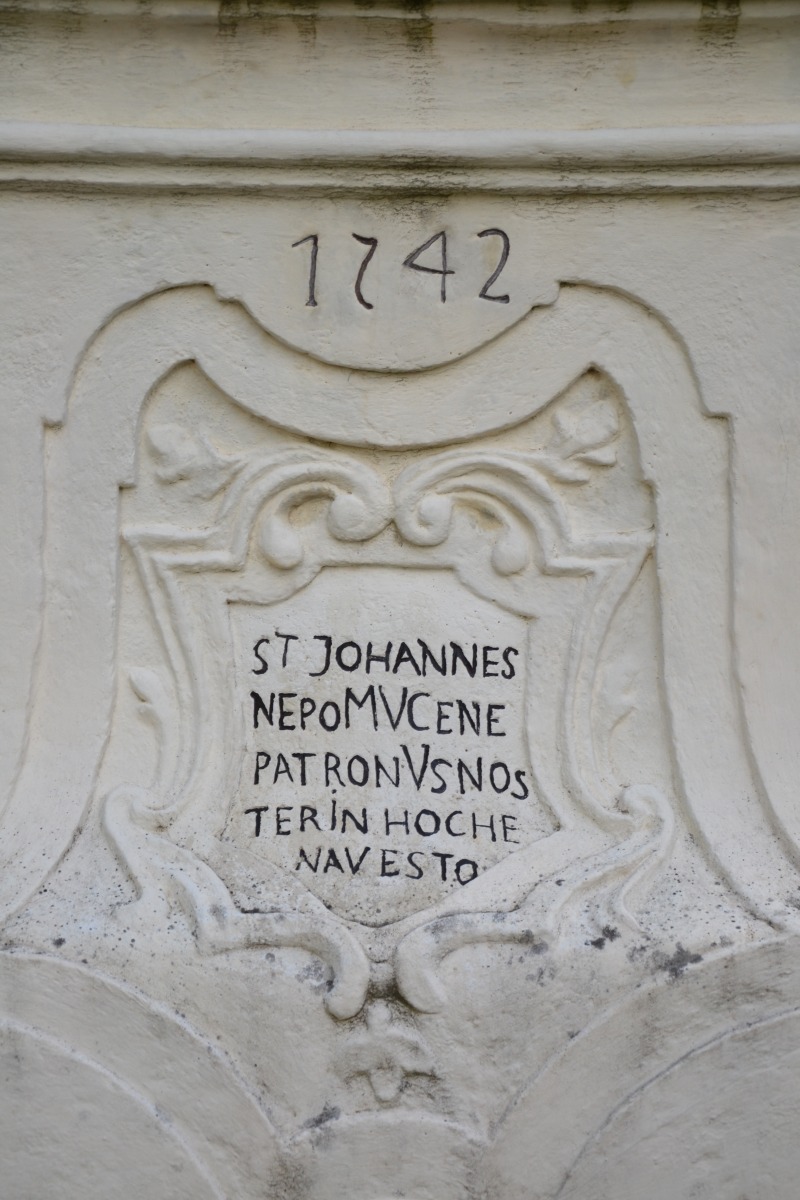 1742
ST JOHANNES
NEPOMVCENE
PATRONVS NOS
TER IN HOCHE
NAV ESTO